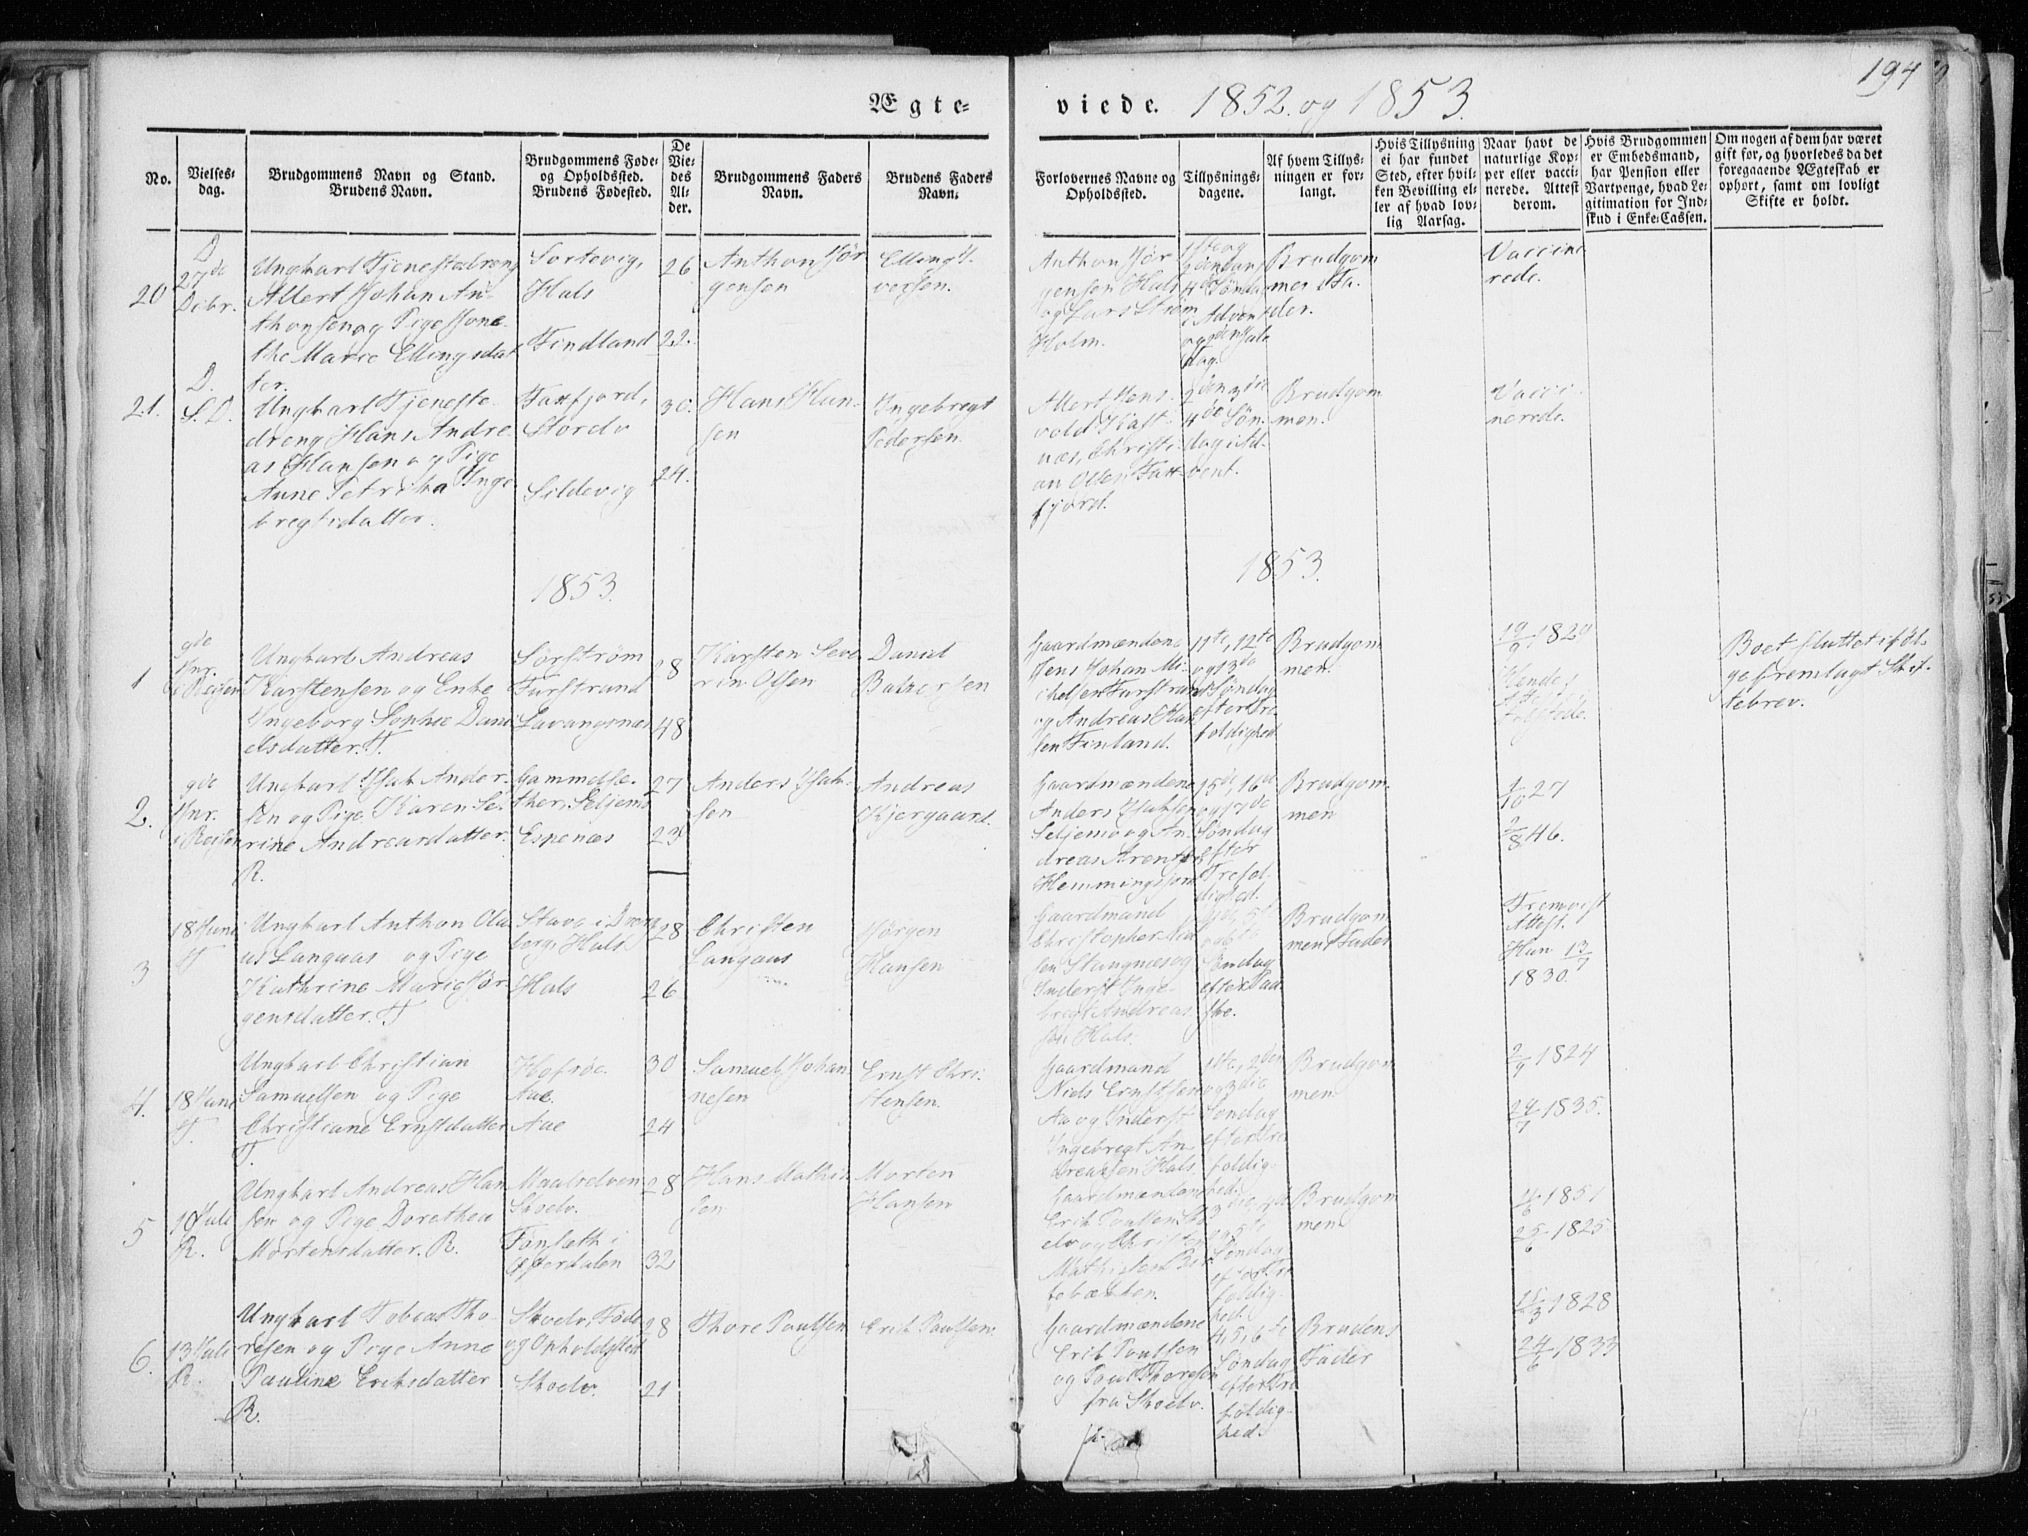 Ægte-
viede. 1852 og 1853.
194
No.
Vielses-
dag.
Brudgommens Navn og Stand.
Brudens Navn.
Brudgommens Føde-
og Opholdssted.
Brudens Fødested.
De
Vie-
des
Al-
der.
Brudgommens Faders
Navn.
Brudens Faders
Navn.
Forlovernes Navne og
Opholdssted.
Tillysnings-
dagene.
Af hvem Tillys-
ningen er for-
langt.
Hvis Tillysning
ei har fundet
Sted, efter hvil-
ken Bevilling el-
ler af hvad lov-
lig Aarsag.
Naar havt de
naturlige Kop-
per eller vacci-
nerede. Attest
derom.
Hvis Brudgommen
er Embedsmand,
har Pension eller
Vartpenge, hvad Le-
gitimation for Ind-
skud i Enke-Cassen.
Om nogen af dem har været
gift før, og hvorledes da det
foregaaende Ægteskab er
ophørt, samt om lovligt
Skifte er holdt.
20
D
27de
Decbr.
Ungkarl Tjenestedreng
Allert Johan An-
thonsen og Pige Hone-
the Marie Ellingsdat
ter.
Sortevig,
Hals
Findland
26
22.
Anthon Jør
gensen
Elling
versen.
Anthon Jør
gensen Hals
og Lars Strøm
Holm.
4de Søndag
i Advent
Brudgom
mens Fa-
der.
Vaccine
rede.
21.
D.
S. D.
Ungkarl Tjeneste-
dreng Hans Andre
as Hansen og Pige
Anne Petrika Inge
bregtsdatter.
Taxfjord,
Storelv
Sildevig
30.
24.
Hans Han-
sen
Ingebregt
Pedersen
Allert Hens-
vold Kast-
næs, Christi-
an Olsen Taxx-
fjord.
2den 3die
4de Søn-
dag i Ad-
vent.
Brudgom
men.
Vacci-
nerede.
1853.
1853.
1
gde
Jnr.
i Reisen
Ungkarl Andreas
Karstensen og Enke
Ingeborg Sophie Dani
elsdatter. T.
Sørstrøm
Furstrand
Lavangsnæs
28
48
Karsten Seve
rin Olsen
Daniel
Balzersen
Gaardmændene
Jens Johan Mi-
chelsen Furstrand
og Andreas Han
sen Finland.
11te, 12te
og 13de
Søndag
efter Tre
foldighed
Brudgom
men.
19/9 1820
Hendes
Boet sluttet iføl-
ge fremlagt Skif-
tebrev.
2.
gde
Jnr.
i Reisen
Ungkarl Isak Ander-
sen og Pige Karen Se-
rine Andreasdatter.
R.
Gammelse-
ther, Seljemo
Espenæs
27
23
Anders Isak-
sen
Andreas
Kjergaard.
Gaardmændene
Anders Isaksen
Seljemo og An-
dreas Arentz
Hemmingsjord
15de, 16de
og 17de
Søndag
efter
Trefol-
dighed.
Brudgom-
men
1/10 27
2/8 46.
3
18 Juni
T
Ungkarl Anthon Ola
us Langaas og Pige
Kathrine Marie Jør
gensdatter. T
Stave i Dverg
berg, Hals
Hals
28
26
Christen
Langaas
Jørgen
Hansen
Gaardmand
Christopher Niel
sen Stangnæs og
Inderst Inge-
bregt Andreas
sen Hals.
Søndag
efter Paa
ske.
Brudgom
mens Fader
Fremvist
Attest.
Hun 13/7
1830.
4.
18 Juni
T.
Ungkarl Christian
Samuelsen og Pige
Christiane Ernstdatter
T.
Hofsøe.
Aae.
Aae
30
24
Samuel Johan
nesen
Ernst Chri-
stensen.
Gaardmand
Niels Ernstsen
Aa og Inderst
Ingebregt An-
dreassen Hals.
1ste, 2den
og 3die
Søndag
efter Tre
foldig-
hed.
Brudgom
men
2/9 1824
29/7 1835.
5
1 Juli
R.
Ungkarl Andreas Han
sen og Pige Dorethea
Mortensdatter. R.
Maalselven
Skoelv.
Tønseth i
Østerdalen
28
32
Hans Mathis
sen
Morten
Hansen
Gaardmændene
Erik Poulsen Sko
elv og Christen
Mathisen Bir
febækken.
3die, 4de
og 5te
Søndag
efter Tre
foldig-
hed.
Brudgom
men
1851
25/6 1825
6.
13 Juli
R.
Ungkarl Tobias Tho-
resen og Pige Anne
Pauline Eriksdatter
R.
Skoelv, Føde
og Opholdssted
Skoelv.
28
21
Thore Poulsen
Erik Poulsen.
Gaardmændene
Erik Poulsen
og Poul Thoresen
fra Skoelv.
4, 5, 6te
Søndag
efter Tre
foldig-
hed.
Brudens
Fader
15/3 1828
24/6 1833